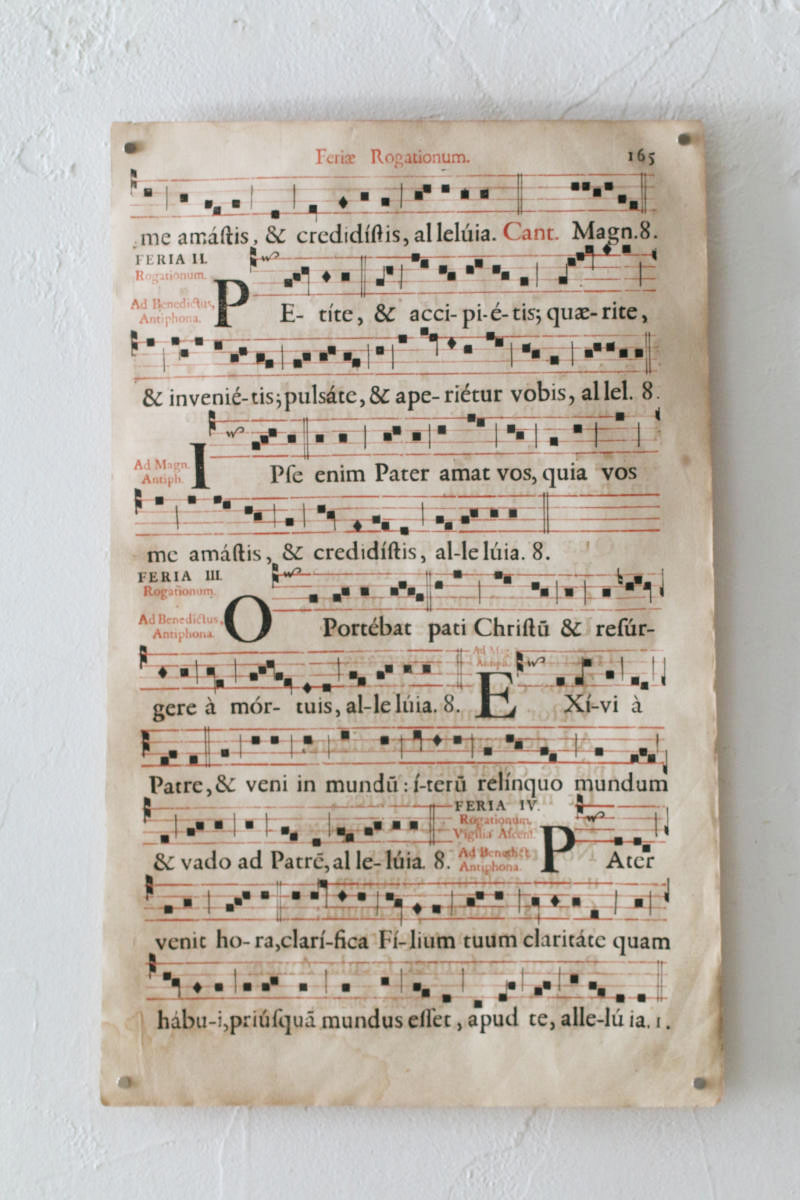 Feriæ Rogationum. 165
me amáſtis, & credidíſtis, allelúia. Cant. Magn. 8.
FERIA II.
Rogationum.
Ad Benedictus,
Antiphona.
PE- títe, & acci-pi-é-tis; quæ-rite,
& invenié-tis; pulsáte, & ape-riétur vobis, allel. 8.
Ad Magn.
Antiph.
IPſe enim Pater amat vos, quia vos
me amáſtis, & credidíſtis, al-lelúia. 8.
FERIA III.
Rogationum.
Ad Benedictus,
Antiphona.
OPortébat pati Chriſtū & reſúr-
gere à mór- tuis, al-lelúia. 8.
Ad Mag.
Antiph.
EXí-vi à
Patre, & veni in mundū: í-terū relínquo mundum
& vado ad Patrē, alle-lúia. 8.
FERIA IV.
Rogationum,
Vigilia Aſcent.
Ad Benedict.
Antiphona.
PAter
venit ho-ra, clarí-fica Fí-lium tuum claritáte quam
hábu-i, priúſquā mundus eſſet, apud te, alle-lú ia. 1.